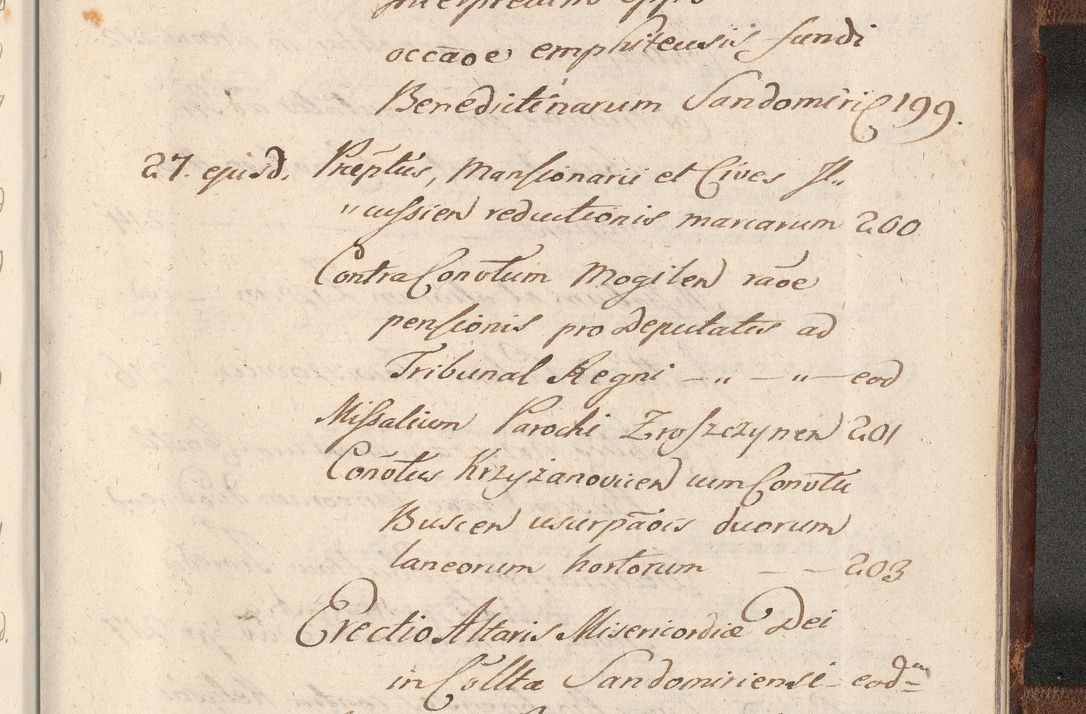 occãoe emphiteusis fundi
Benedictinarum Sandomiriẽ 199.
27. ejusd. Præptus, Mansionarii et Cives Il„
„cussien reductionis marcarum 200
Contra Convtum Mogilen raõe
pensionis pro Deputatis ad
Tribunal Regni – „ – „ – eod
Missalium Parochi Zroszczynen 201
Conõtus Krzyżanovicen cum Convtu
Buscen usurpãois duorum
laneorum hortorum – – 203
Erectio Altaris Misericordiæ Dei
in Colltæ Sandomiriensi – eodem